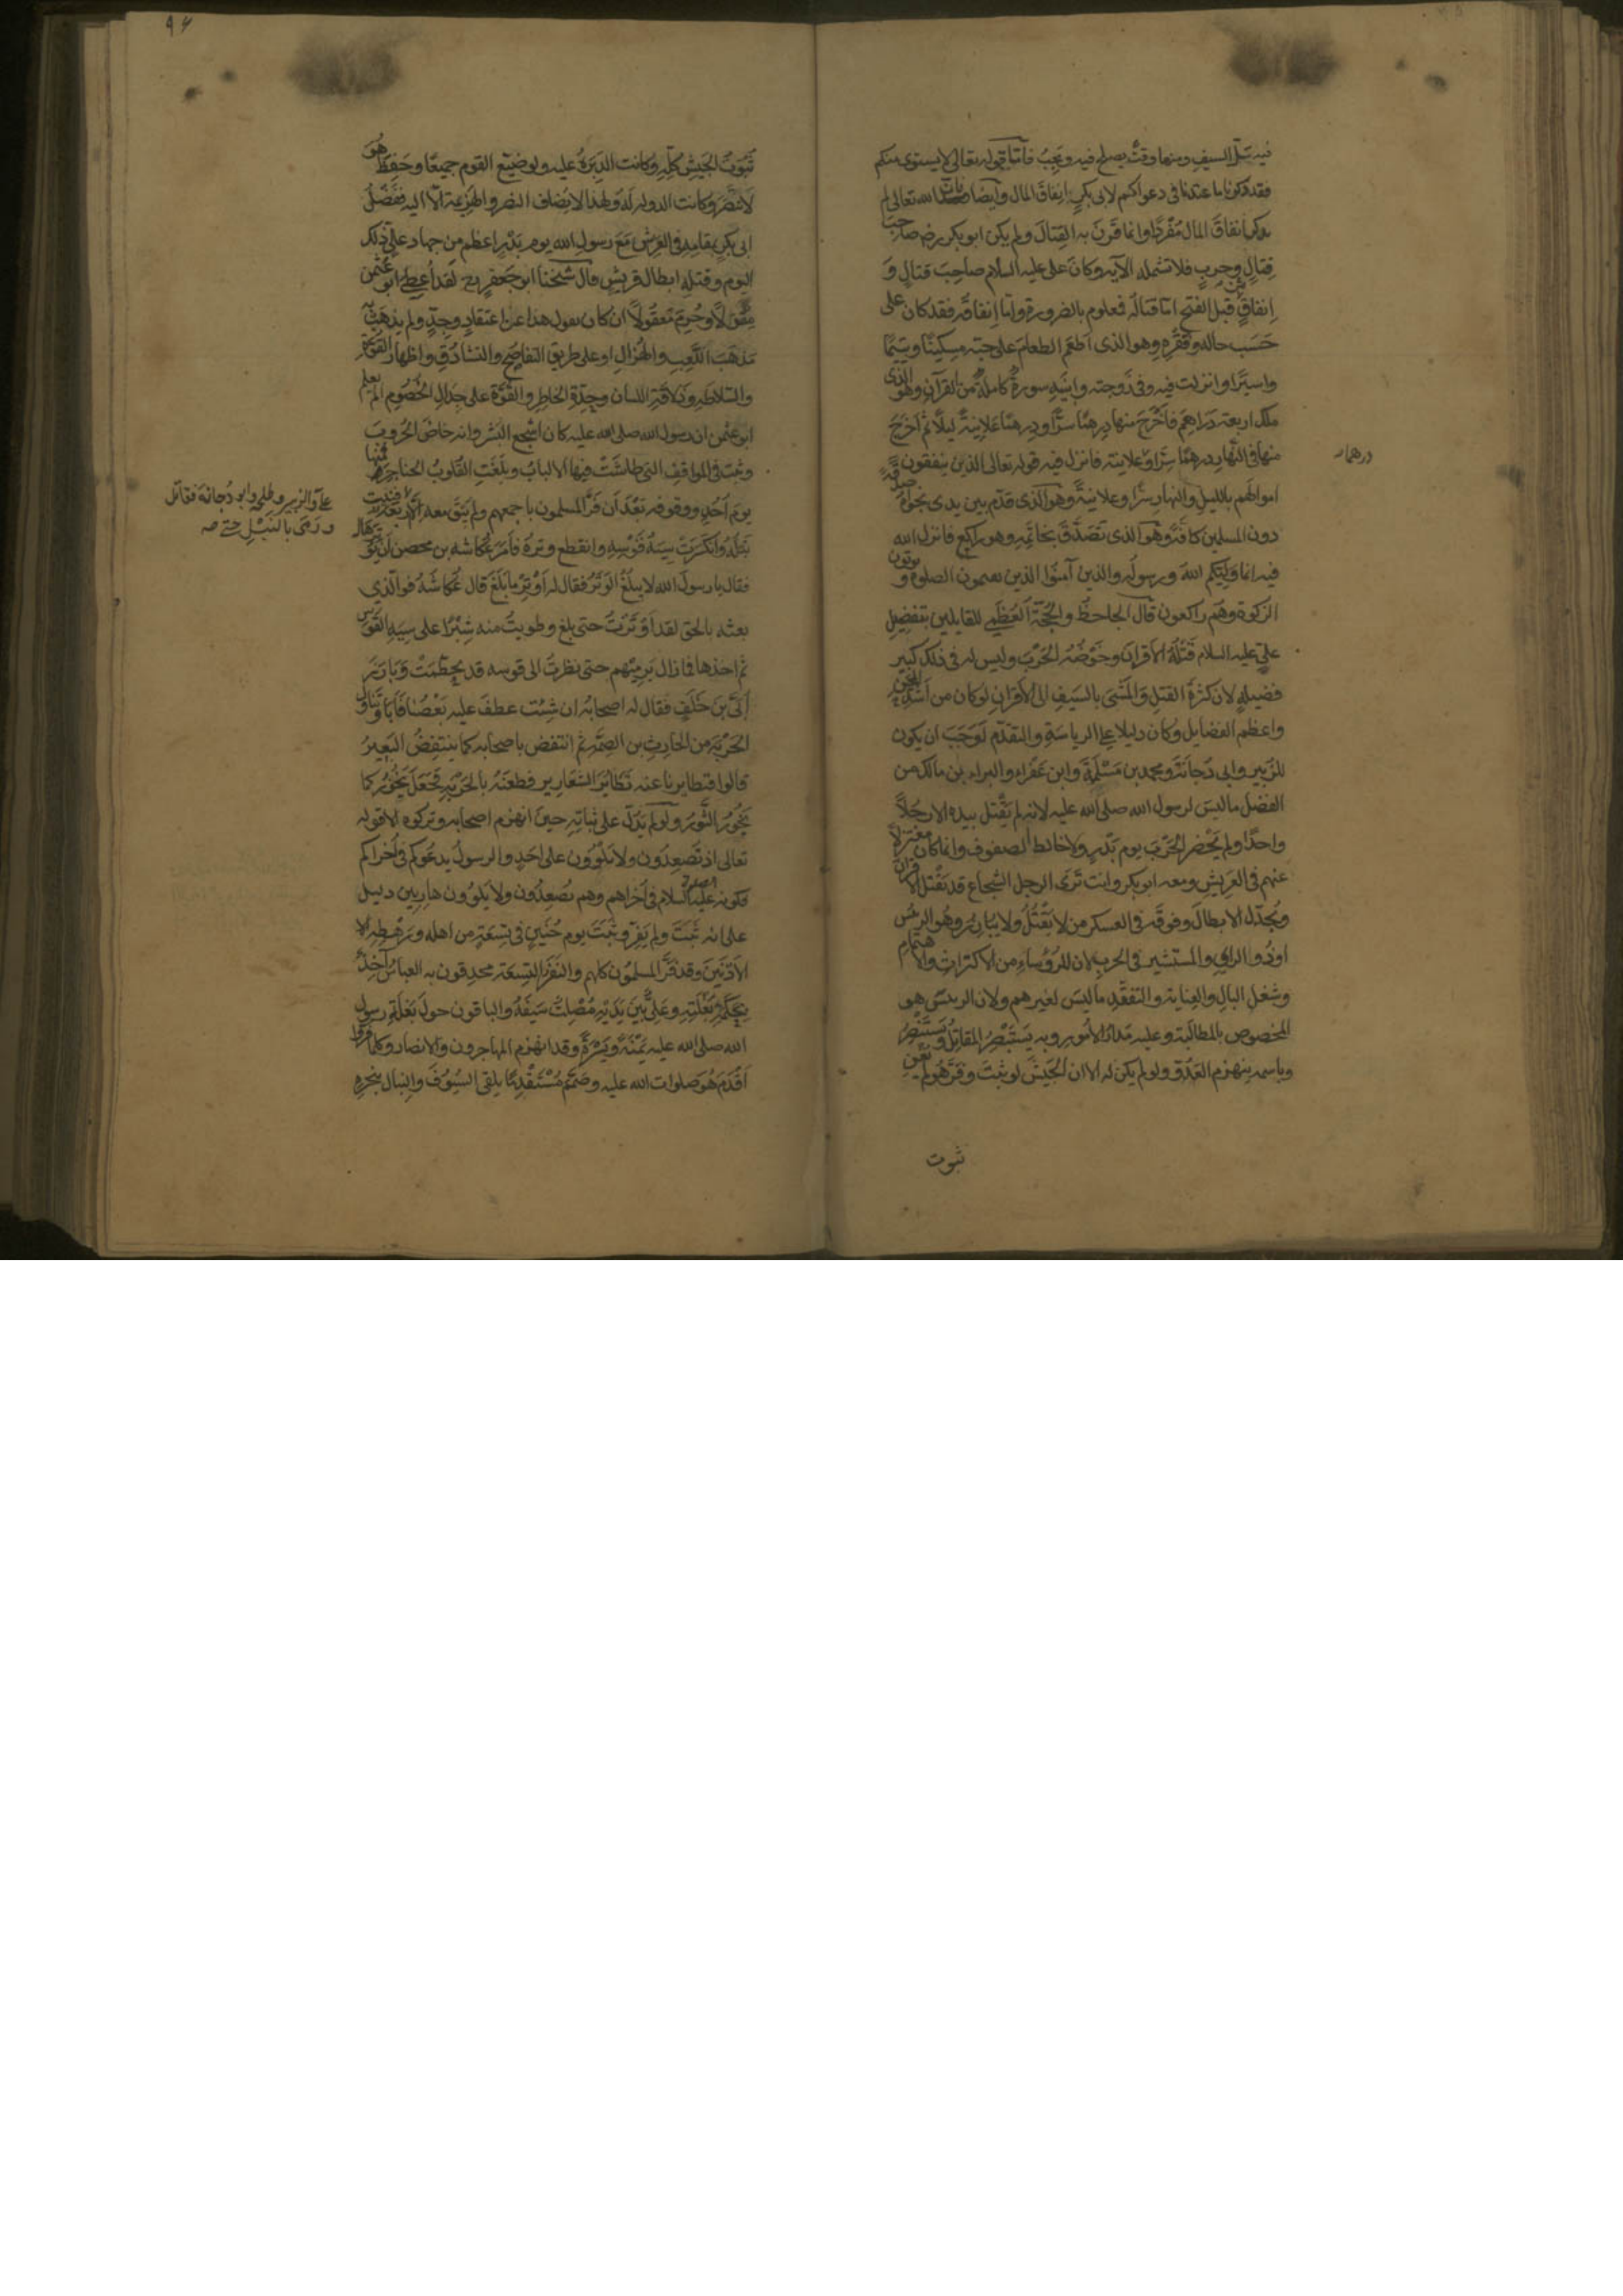 فيه سلّ السيف ومنها وقتٌ يصلح فيه ويجبُ فأمّا قوله تعالى لا يستوى منكم
فقد ذكرنا ما عندنا فى دعواكم لابى بكرٍ إنفاقَ المال وأيضا فان الله تعالى لم
يذكر انفاقَ المال مُفْرَدًا وانما قَرَنَ به القتالَ ولم يكن ابو بكر رضه صاحبَ
قتالٍ وحربٍ فلا تشمله الآيه وكانَ على عليه السلام صاحِبَ قتالٍ وَ
إنفاقٍ قبل الفتح امّا قتالُه فمعلوم بالضرورة وامّا إنفاقُه فقد كان على
حَسَب حاله وفَقْرِه وهو الذى أطعَمَ الطعام على حبّه مسكينًا ويتيمًا
واسيرًا وانزلت فيه وفى زوجته وابنَيْهِ سورةٌ كاملةٌ من القرآن وهو الذى
ملك اربعة دَراهِمَ فأخْرَجَ منها دِرهمًا سرًّا ودِرهمًا عَلانِيةً ليلًا ثم أخرَجَ
منها فى النّهارِ درهمًا سرًّا وعلانية فانزل فيه قوله تعالى الذين ينفقون
اموالَهم بالليل والنهار سرًّا وعلانيةً وهو الذى قدّم بين يدى نجواهُ صدقةً
دون المسلمين كافّةً وهو الذى تَصَدَّقَ بخاتَمِه وهو راكع فانزل الله
فيه انما وليّكم اللهُ ورسولُه والذين آمنُوا الذين يقيمون الصلوة ويؤتون
الزكوة وهم راكعون قال الجاحظُ والحُجّةُ العُظْمى للقايلين بتفضيل
علىٍّ عليه السلام قَتْلُهُ الأقرانَ وخَوْضُهُ الحَرْبَ وليس له فى ذلك كبير
فضيلةٍ لان كثرةَ القتلِ والمَشْىَ بالسَيف الى الأقرانِ لو كان من أشدّ المِحَنِ
واعظم الفضايل وكان دليلا على الرياسة والتقدّم لَوَجَبَ ان يكون
للزبير وابى دُجانَةَ ومحمد بن مَسْلَمَةَ وابن عَفْراء والبراء بن مالك من
الفضل ما ليسَ لرسول الله صلى الله عليه لانه لم يَقْتل بيده الا رجُلًا
واحدًا ولم يَحْضر الحَرْبَ يوم بَدْرٍ ولا خالط الصفوف وانما كان معتزلًا
عنهم فى العَريشِ ومعه ابو بكر وانت تَرى الرجل الشجاع قد يَقْتل الاقرانَ
ويُجدّل الابطالَ وفوقَه فى العسكر من لا يَقْتُلُ ولا يبارزُ وهُو الرئيس
اوذُو الراى والمستشير فى الحرب لان للرُؤساءِ من الاكتراثِ والاهتمام
وشغلِ البالِ والعِنايةِ والتفقُّدِ ما ليسَ لغيرهم ولان الريئس هو
المخصوص بالمطالَبة وعليه مَدارُ الأمور وبه يَستَبْصِرُ المقاتِلُ ويَستَنْصِرُ
وباسمه ينهزم العَدُوّ ولو لم يكن له الا ان الجَيشَ لو ثبتَ وفَرّ هُو لم يُغْنِ
ثبوت
درهما
٩٤
ثُبُوتُ الجَيش كُلِّه وكانت الدَبرَةُ عليه ولو ضيّع القوم جميعًا وحَفِظَ هُوَ
لانتصَر وكانت الدوله لَهُ ولهذا لا يُضاف النصر والهزيمة الّا اليه ففَضْلُ
ابى بكرٍ بمقامه فى العَرِيش مَعَ رسول الله يوم بَدْرٍ اعظم مِن جهاد علىٍّ ذلك
اليوم وقتلِه ابطال قريشٍ قال شيخنا ابو جعفرٍ رح لقد أُعطِىَ ابو عثمن
مِقْوَلًا وحُرِمَ مَعقُولًا ان كان يقول هذا عن اعتقادٍ وجِدٍّ ولم يذهَبْ به
مَذهَبَ اللّعِبِ والهُزالِ او على طريق التفاصُح والتشادُقِ واظهار القوّة
والسّلاطةِ وذَلاقةِ اللسان وحِدّةِ الخاطِرِ والقُوَّة على جِدَالِ الخُصُومِ الم يعلم
ابو عثمن ان رسول الله صلى الله عليه كان اشجع البَشر وانه خاضَ الحُروبَ
وثبت فى المواقِفِ التى طاشَتْ فيها الألبابُ وبلَغَتِ القُلوبُ الحناجرَ فمنها
يوم أُحُدٍ ووقوفه بَعْدَ أن فَرَّ المسلمون باجمعهم ولم يَبْقَ معه الّا اربعةٌ
علىّ والزبير وطلحه وابو دُجانَة فقاتل
ورَمَى بالنَبْلِ حتى صه
فنيت نَبْلُهُ وانكَسَرَتْ سِيَةُ قَوْسِه وانقطع وترُهُ فأمَرَ عُكاشه بن محصن أن يُوْتِرَها
فقال يا رسولَ الله لا يبلُغُ الوَتَرُ فقال له أوْتِرْ ما بَلَغَ قال عُكاشَةُ فوالّذى
بعثه بالحقِ لقد أوْتَرْتُ حتى بلغ وطويتُ منه شِبْرًا على سِيَةِ القَوْسِ
ثم اخذها فما زال يَرميهم حتى نظرتُ الى قوسه قد تحطّمَتْ وبارَزَ
أُبَىَّ بنَ خَلَفٍ فقال له اصحابُه ان شِئتَ عطفَ عليه بَعْضُنا فأبَا وتَناولَ
الحَرْبَةَ من الحارِثِ بن الصِمّةِ ثم انتفض باصحابه كما ينتفِضُ البَعِيرُ
قالوا فتطايرنا عنه تَطايُرَ الشَعَارِير فطعَنَهُ بالحَرْبَةِ فجَعَلَ يَخُورُ كما
يَخُورُ الثَّورُ ولو لم يَدُلّ على ثَباتِه حينَ انهزم اصحابُه وتركوه الا قولُه
تعالى اذ تُصعِدُون ولا تَلْوُون على أحَدٍ والرسولُ يدعُوكم فى أُخراكم
فكونه عليه السلام فى أُخراهم وهم يُصْعِدُون ولا يلوُون هارِبين دليل
على انه ثَبَتَ ولم يَفِرّ وثَبَتَ يوم حُنَينٍ فى تِسعَةٍ من اهله ورَهْطِه
الأدْنَيْنَ وقد فَرَّ المسلمُون كلهم والنفَرُ التِسعَة محدقون به العباسُ آخِذٌ
بحَكَمةِ بَغْلَتِهِ وعَلِىٌّ بَينَ يَدَيْهِ مُصْلِتٌ سَيفَهُ والباقون حولَ بَغلَةِ رسول
الله صلى الله عليه يَمْنَةً ويَسْرَةً وقد انهزم المهاجرون والانصار وكلّما فرّوا
أقدَمَ هُوَ صلوات الله عليه وصَمَّمَ مُسْتَقْدِمًا يلقى السُيُوفَ والنِبالَ بنحرِهِ